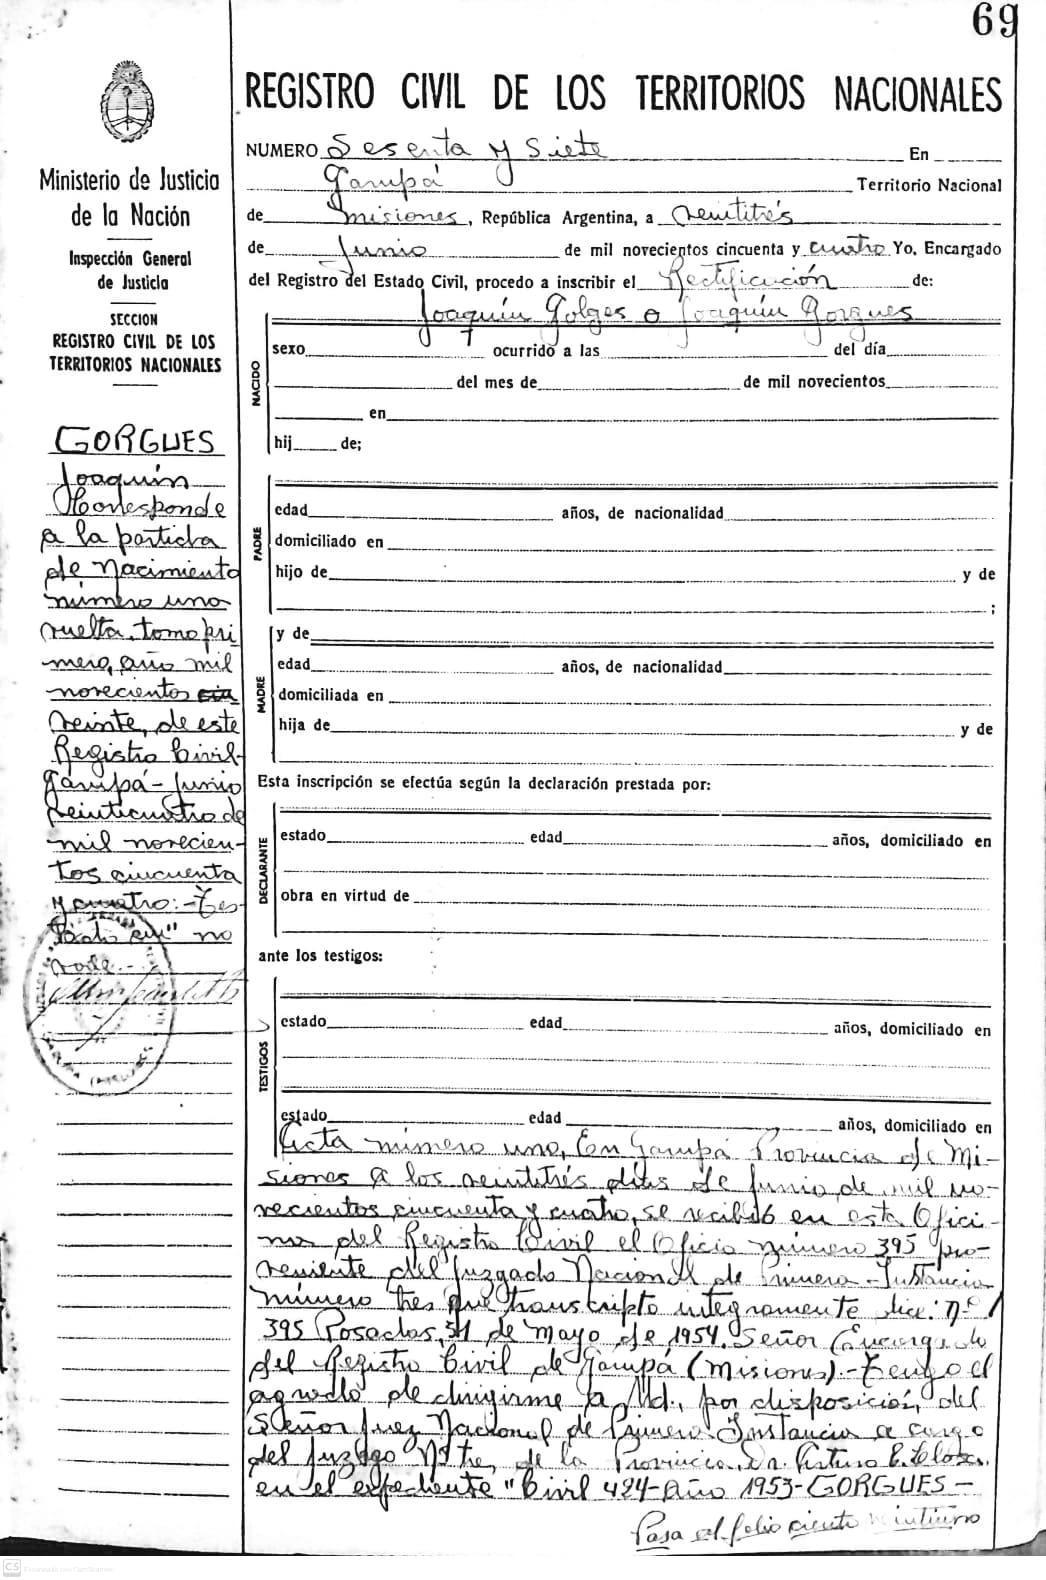 69
REGISTRO CIVIL DE LOS TERRITORIOS NACIONALES
Ministerio de Justicia
de la Nación
Inspección General
de Justicia
SECCION
REGISTRO CIVIL DE LOS
TERRITORIOS NACIONALES
GORGUES
Joaquín
Corresponde
a la partida
de Nacimiento
número uno
vuelta, tomo pri
mero, año mil
novecientos
veinte, de este
Registro Civil-
Garupá - Junio
veinticuatro de
mil novecien-
tos cincuenta
y cuatro:- Tes-
tado no
vale.-
NUMERO Sesenta y Siete En
Garupá Territorio Nacional
de Misiones, República Argentina, a veintitrés
de Junio de mil novecientos cincuenta y cuatro Yo, Encargado
del Registro del Estado Civil, procedo a inscribir el Rectificación de:
Joaquín Golges o Joaquín Gorgues
NACIDO
sexo ocurrido a las del día
del mes de de mil novecientos
en
hij de;
PADRE
edad años, de nacionalidad
domiciliado en
hijo de y de
;
MADRE
y de
edad años, de nacionalidad
domiciliada en
hija de y de
Esta inscripción se efectúa según la declaración prestada por:
DECLARANTE
estado edad años, domiciliado en
obra en virtud de
ante los testigos:
TESTIGOS
estado edad años, domiciliado en
estado edad años, domiciliado en
Acta número uno, En Garupá Provincia de Mi-
siones a los veintitrés días de Junio de mil no-
vecientos cincuenta y cuatro, se recibió en esta Ofici-
na del Registro Civil el Oficio número 395 pro-
veniente del Juzgado Nacional de Primera Instancia
número tres que transcripto integramente dice: Nº
395 Posadas, 31 de Mayo de 1954. Señor Encargado
del Registro Civil de Garupá (Misiones).- Tengo el
agrado de dirigirme a Ud., por disposición del
Señor Juez Nacional de Primera Instancia a cargo
del Juzgado Nº tres, de la Provincia, Dr. Arturo E.
en el expediente "Civil 424- Año 1953- GORGUES -
Pasa al folio ciento veintiuno
CS